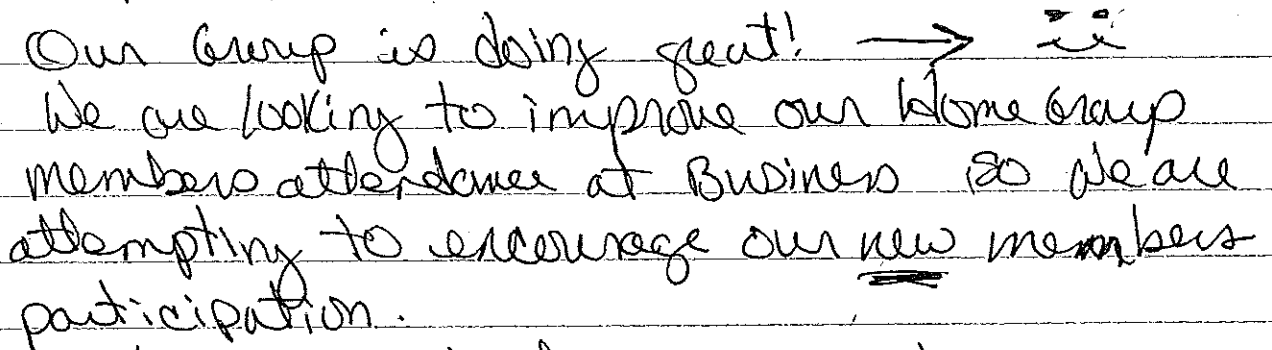 Our Group is doing great! → ¨⌣
We are looking to improve our Home Group
members attendance at Business so We are
attempting to encourage our new members
participation.